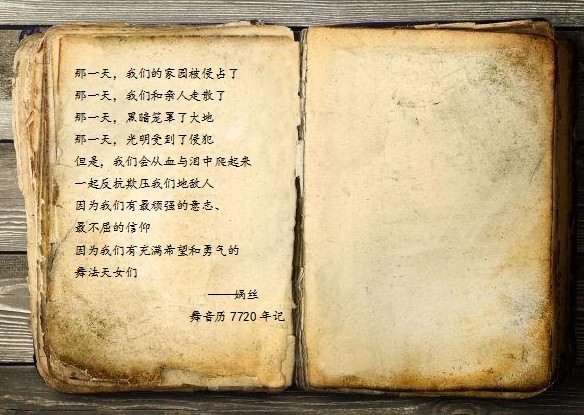 那一天，我们的家园被侵占了
那一天，我们和亲人走散了
那一天，黑暗笼罩了大地
那一天，光明受到了侵犯
但是，我们会从血与泪中爬起来
一起反抗欺压我们地敌人
因为我们有最顽强的意志、
最不屈的信仰
因为我们有充满希望和勇气的
舞法天女们
——娲丝
舞音历 7720 年记